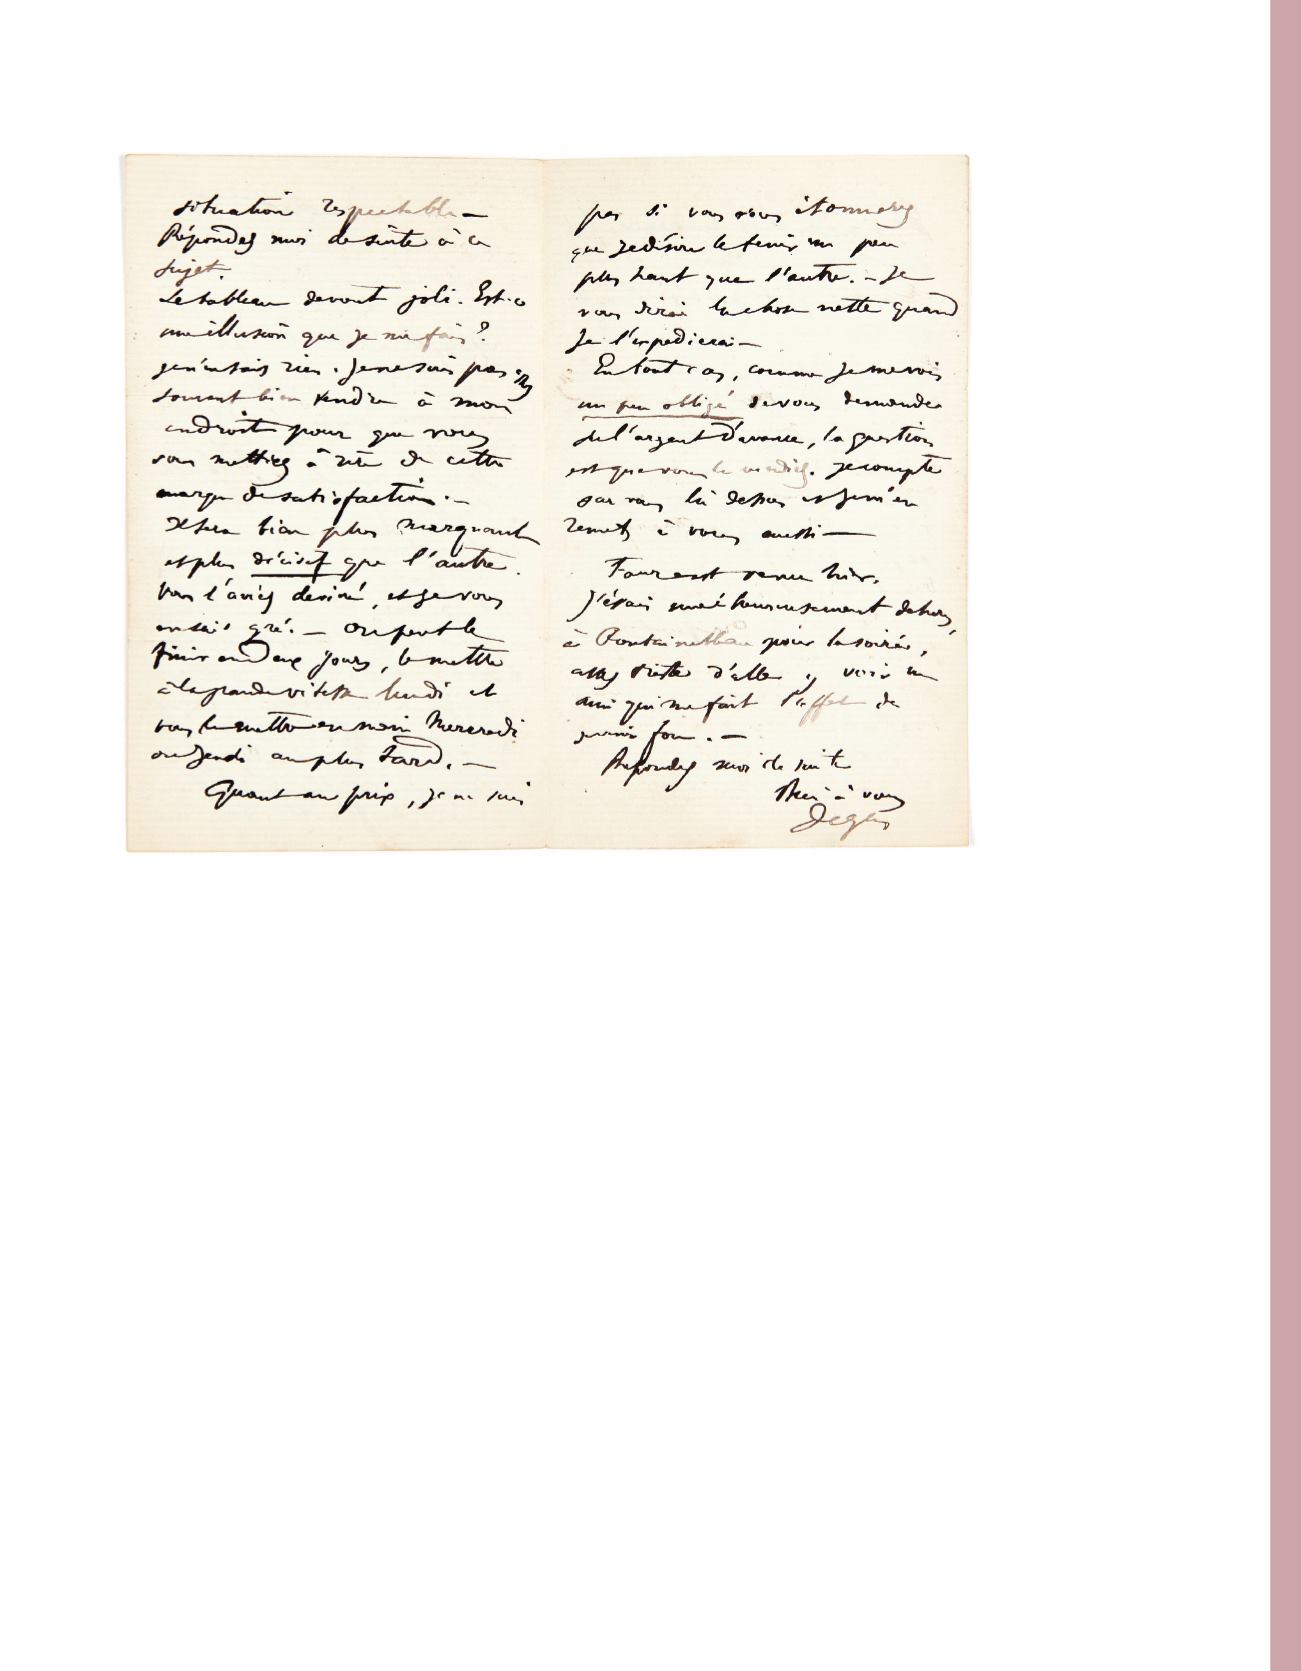 situation respectable —
Répondez moi de suite à ce
sujet.
Le tableau devient joli. Est-ce
une illusion que je me fais ?
je n'en sais rien. Je ne suis pas assez
souvent bien tendre à mon
endroit pour que vous
vous mettiez à rire de cette
marque de satisfaction. —
Il sera bien plus marquant
et plus décisif que l'autre.
Vous l'aviez deviné, et je vous
en sais gré. — On peut le
finir en deux jours, le mettre
à la grande vitesse lundi et
vous le mettre en main Mercredi
ou Jeudi au plus tard. —
Quant au prix, je ne sais
pas si vous vous étonnerez
que je désire le tenir un peu
plus haut que l'autre. — Je
vous dirai la chose nette quand
je l'expédierai —
En tout cas, comme je me vois
un peu obligé de vous demander
de l'argent d'avance, la question
est que vous le vendiez. Je compte
sur vous là dessus et je m'en
remets à vous aussi —
Faure est venu hier.
J'étais malheureusement dehors,
à Fontainebleau pour la soirée,
assez triste d'aller y voir un
ami qui me fait l'effet de
devenir fou. —
Répondez moi de suite
Bien à vous
Degas